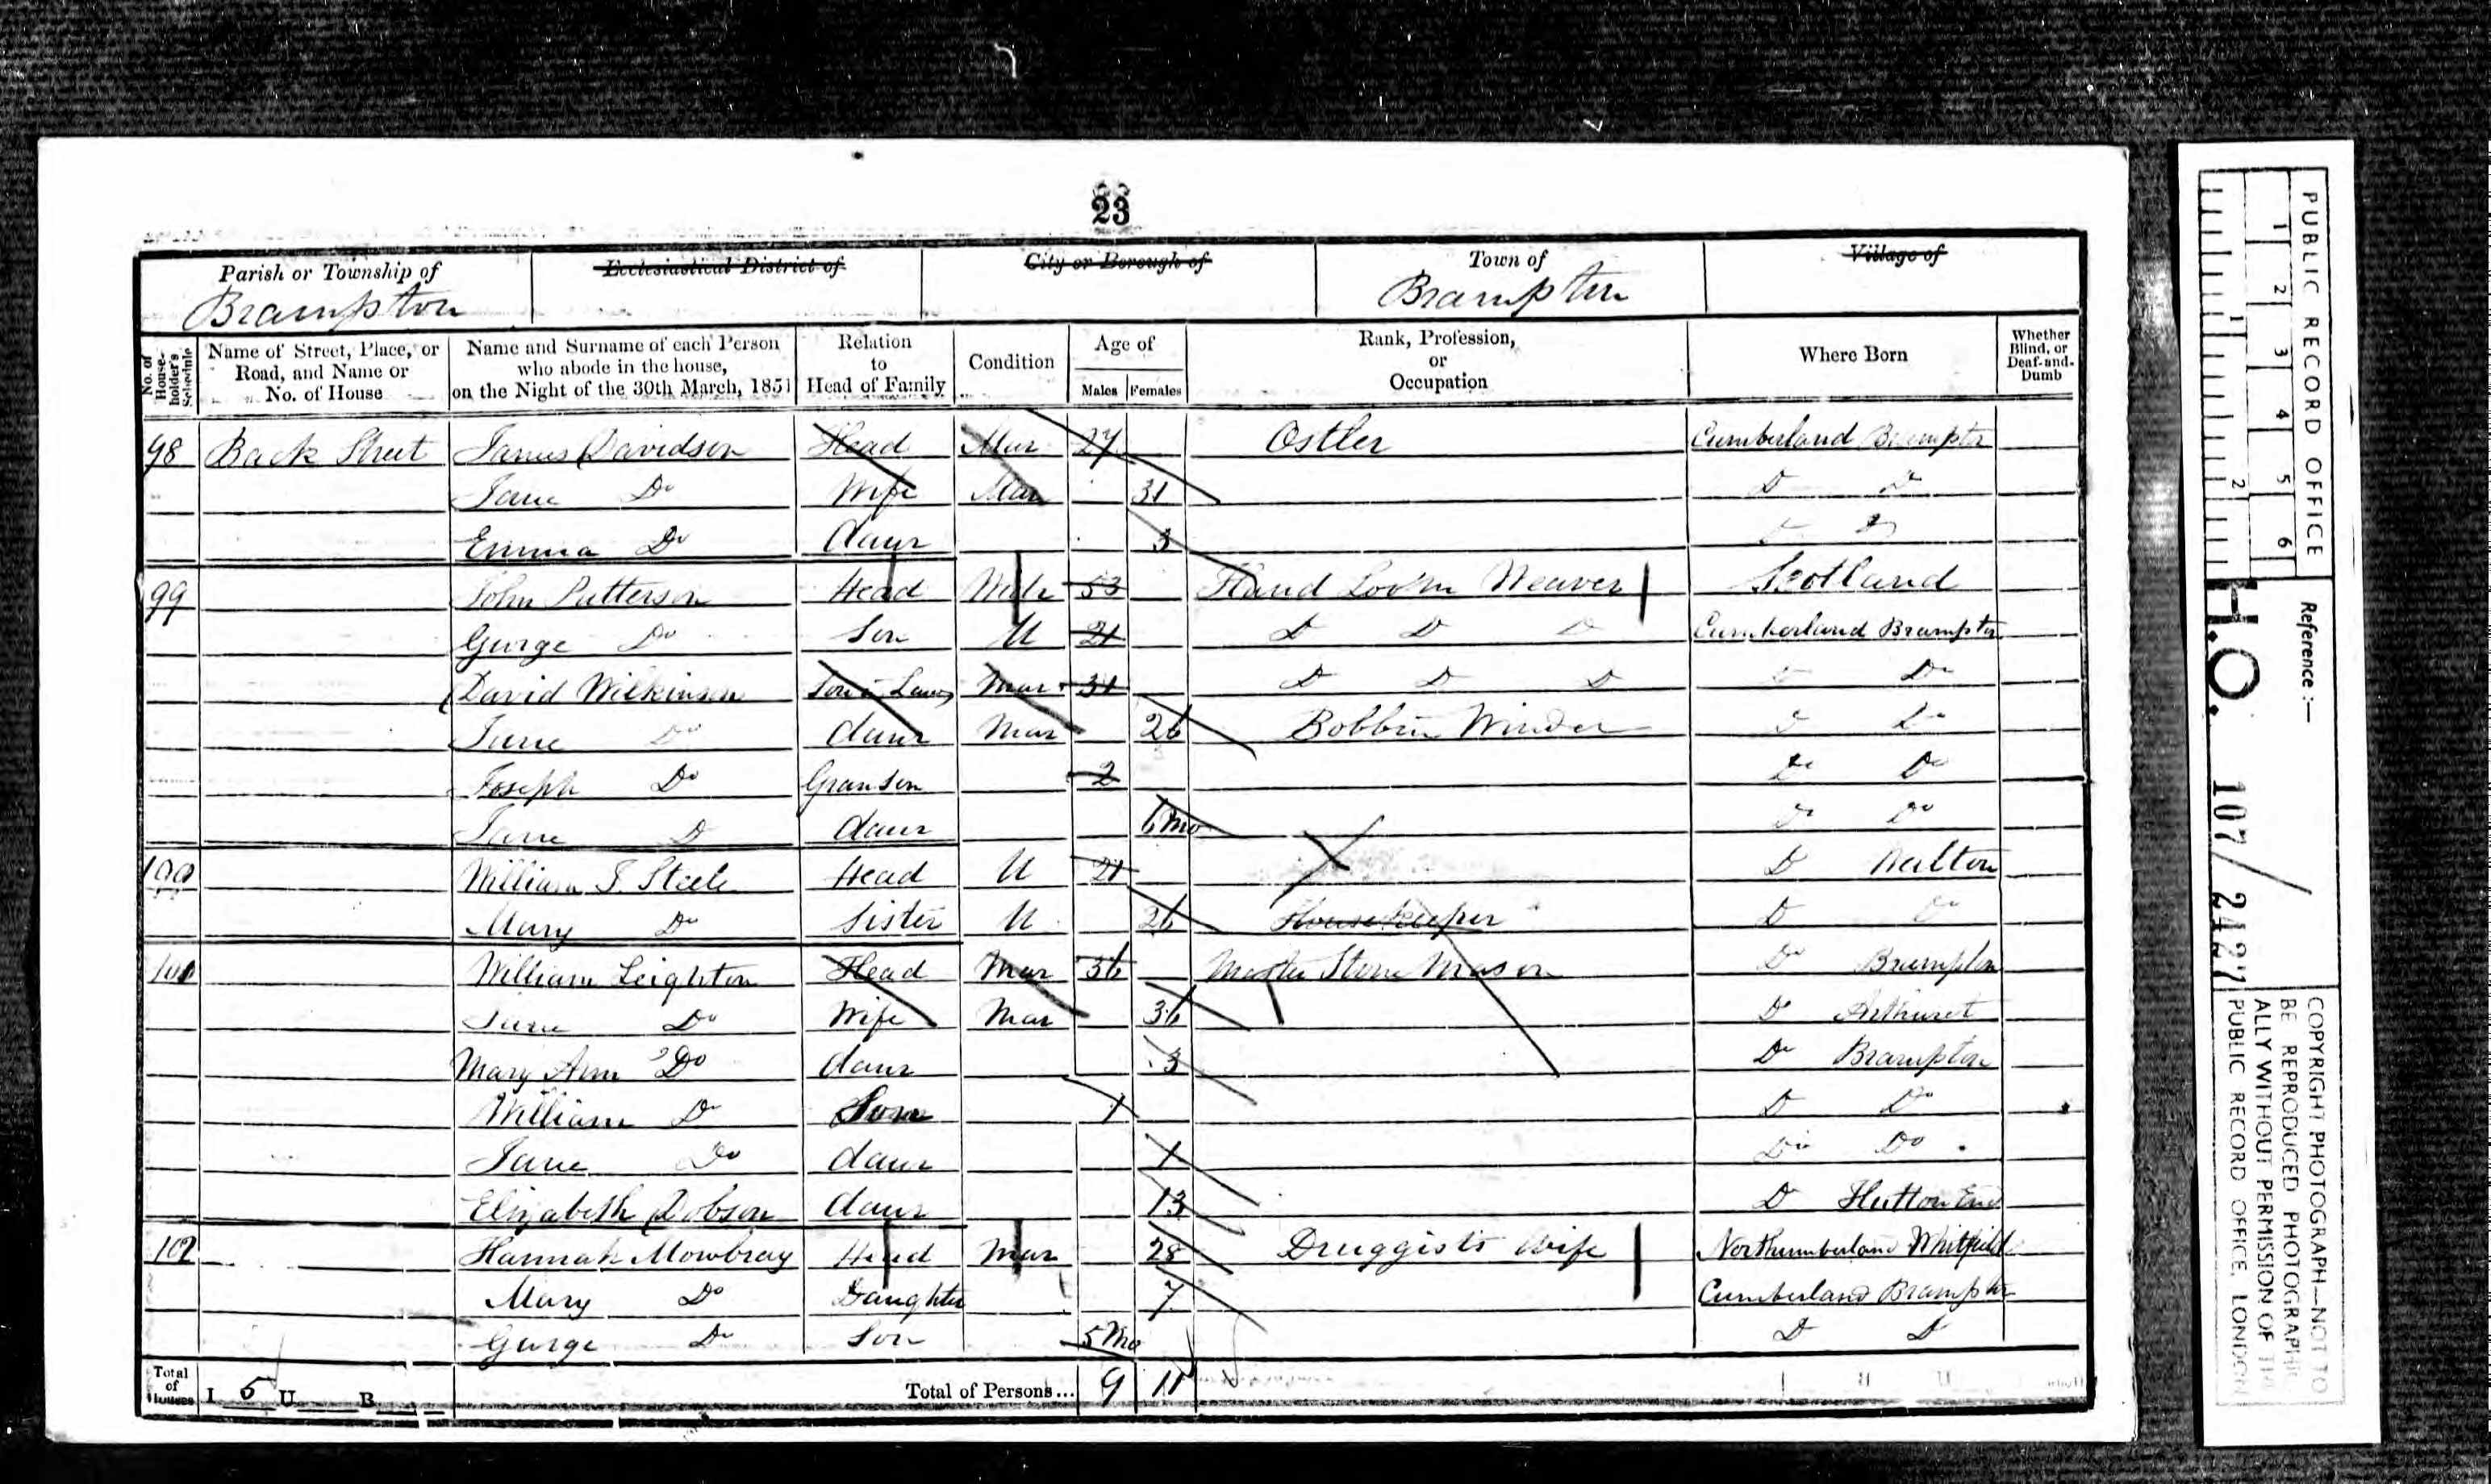 23
Parish or Township of Ecclesiastical District of City or Borough of Town of Village of
Brampton Brampton
No. of House-holder's Schedule
Name of Street, Place, or Road, and Name or No. of House
Name and Surname of each Person who abode in the house, on the Night of the 30th March, 1851
Relation to Head of Family
Condition
Age of
Males Females
Rank, Profession, or Occupation
Where Born
Whether Blind, or Deaf-and-Dumb
98 Back Street James Davidson Head Mar 27 Ostler Cumberland Brampton
Jane Do Wife Mar 31 D D
Emma Do daur 3 D
99 John Patterson Head 53 Hand Loom Weaver Scotland
George Do Son U 21 D D D Cumberland Brampton
David Wilkinson Son in Law Mar 31 D D D Do
Jane Do daur Mar 26 Bobbin Winder D Do
Joseph Do Granson 2 Do Do
Jane D daur 6 Mo Do Do
100 William J. Steele Head U 21 D Walton
Mary Do Sister U 26 Housekeeper D Do
101 William Leighton Head Mar 36 Master Stone Mason Do Brampton
Jane Do Wife Mar 36 Do Arthuret
Mary Ann Do daur 3 Do Brampton
William D Son 1 D Do
Jane Do daur 1 Do Do
Elizabeth Dobson daur 13 D Hutton End
102 Hannah Mowbray Head Mar 28 Druggists Wife Northumberland Whitfield
Mary Do Daughter 7 Cumberland Brampton
George Do Son 5 Mo D D
Total of Houses I 5 U B Total of Persons... 9 11
PUBLIC RECORD OFFICE
1 2 3 4 5 6
1 2
Reference:—
H.O. 107/2427
COPYRIGHT PHOTOGRAPH—NOT TO BE REPRODUCED PHOTOGRAPHIC-ALLY WITHOUT PERMISSION OF THE PUBLIC RECORD OFFICE, LONDON